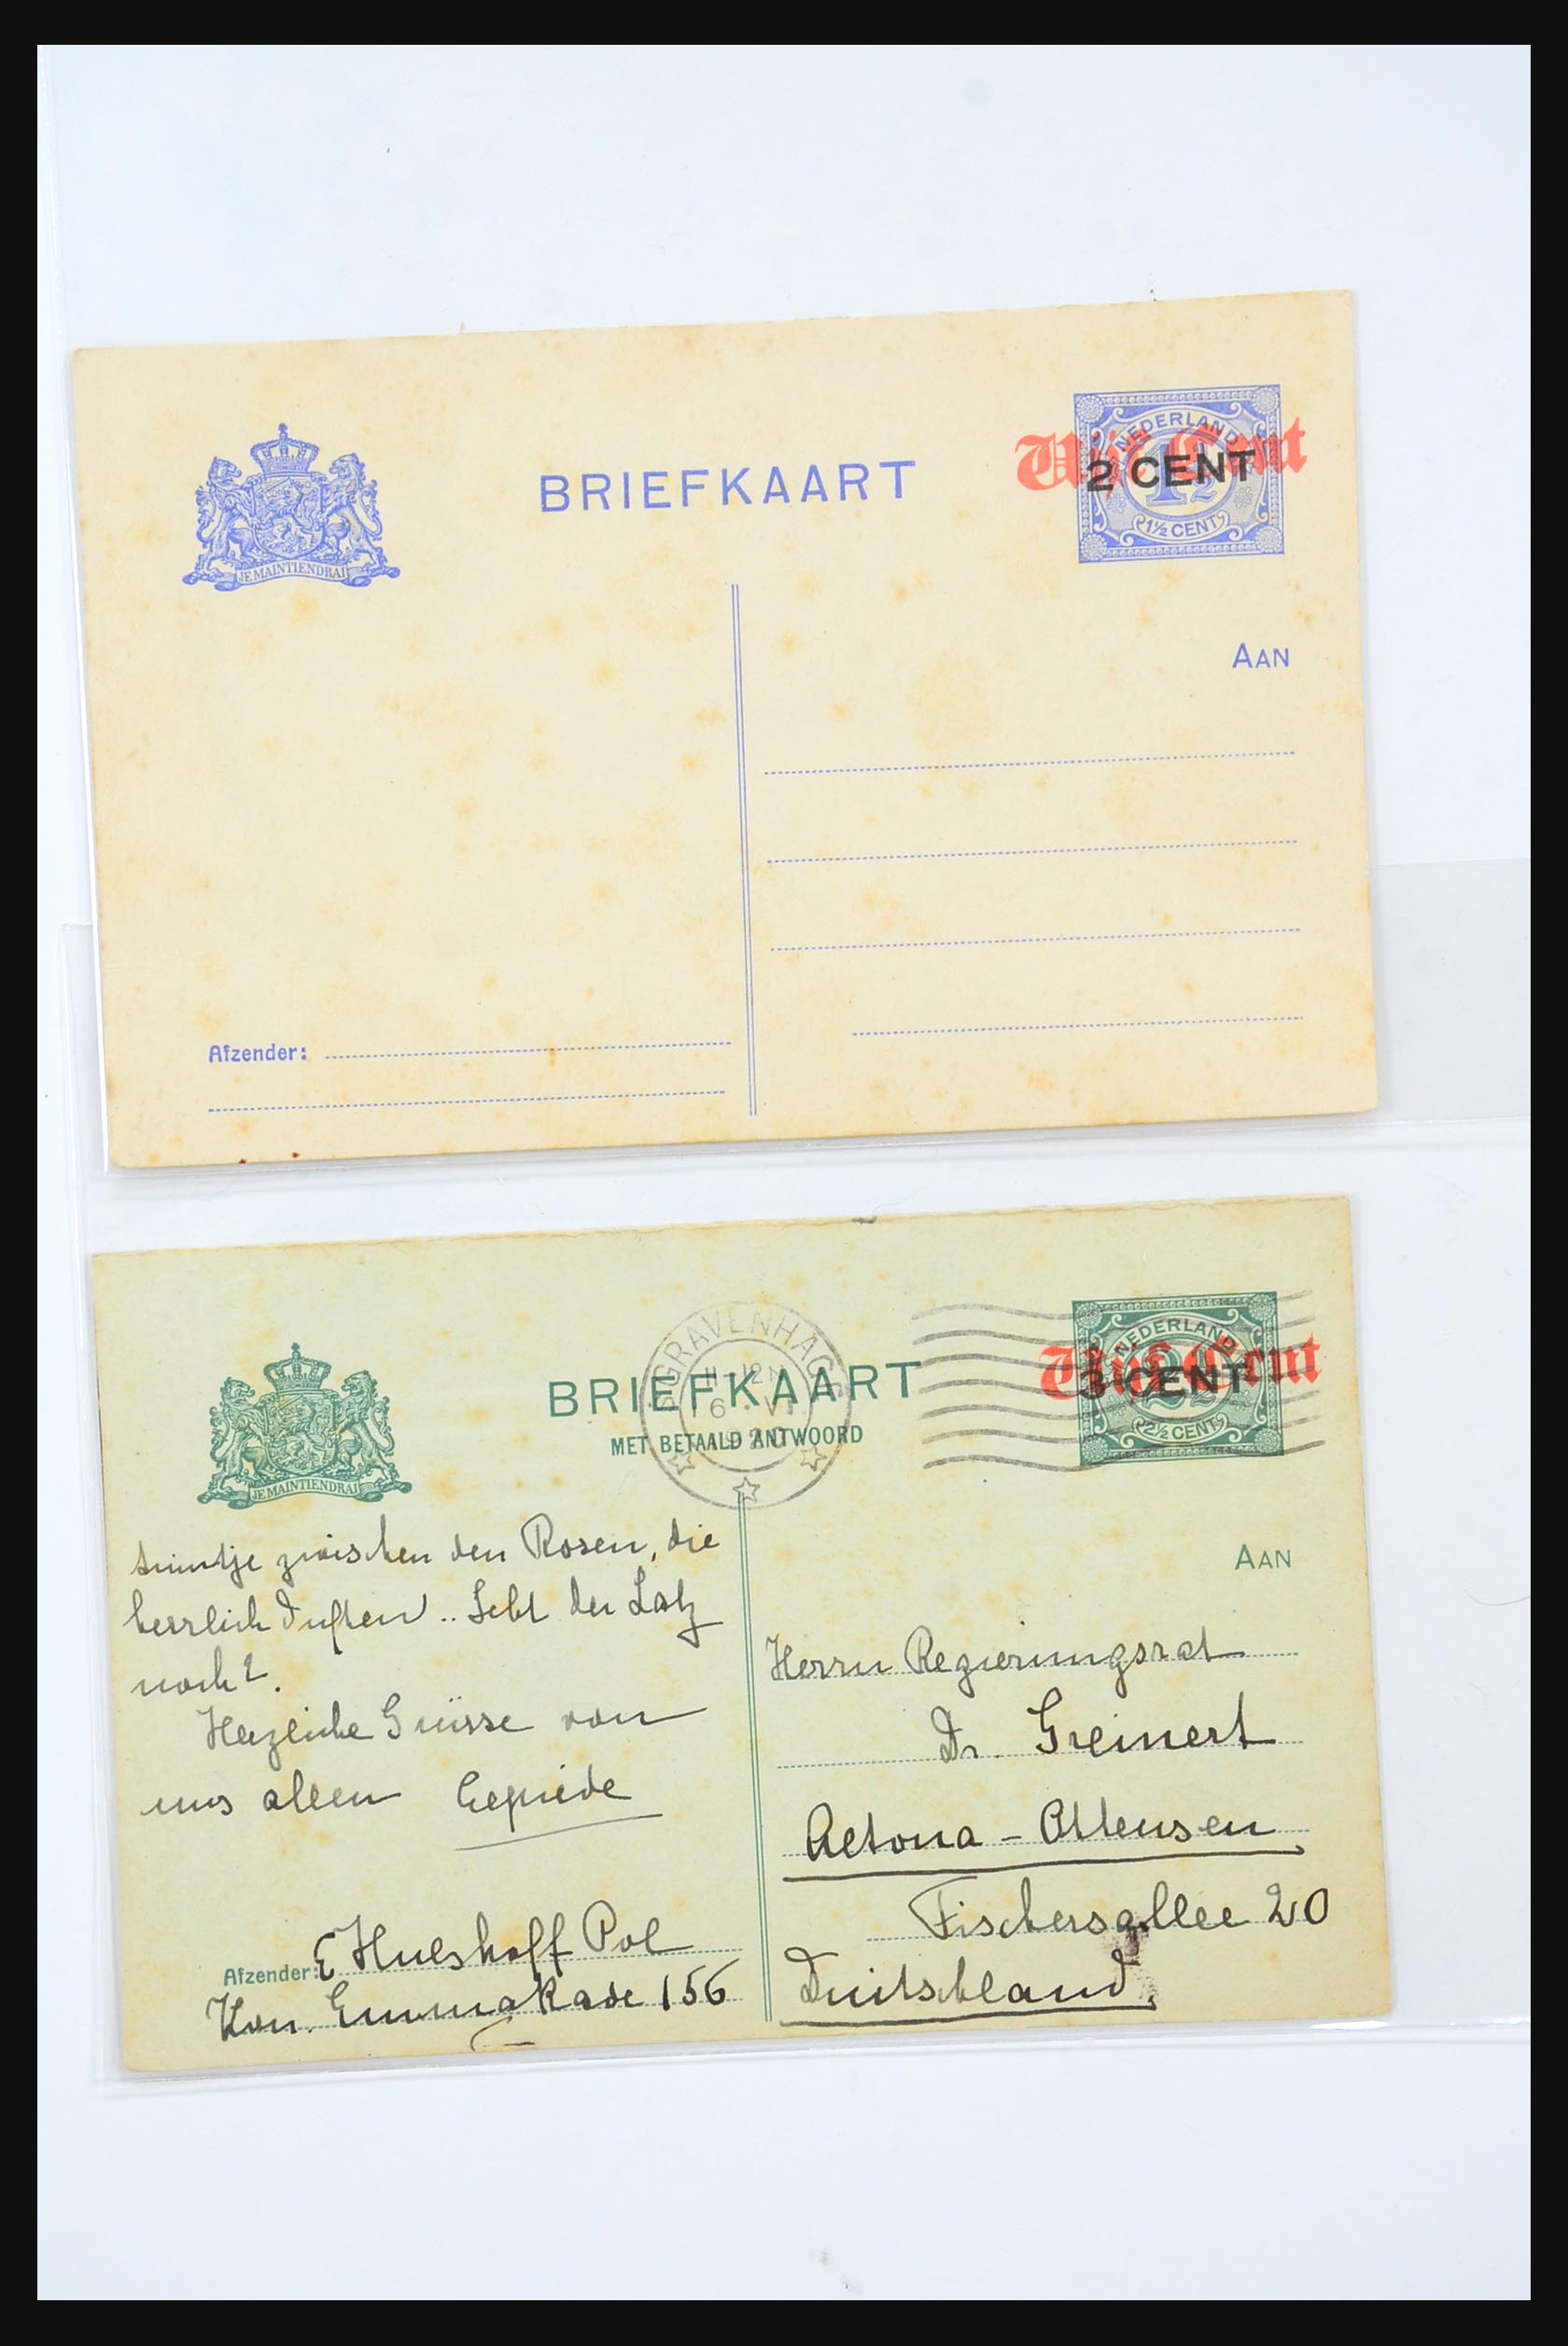 BRIEFKAART
NEDERLAND
Vijf Cent
2 CENT
1½
1½ CENT
JE MAINTIENDRAI
AAN
Afzender:
'SGRAVENHAGE
BRIEFKAART
MET BETAALD ANTWOORD
NEDERLAND
Vijf Cent
3 CENT
2½
2½ CENT
JE MAINTIENDRAI
zwischen den Rosen, die
herrlich duften.. Lebt der Latz
noch?
Herzliche Grüsse von
uns allen
AAN
Herrn Regierungsrat
Dr. Greinert
Altona - Ottensen
Fischersallee 20
Duitschland.
Afzender: E Hulshoff Pol
Kon. Emmakade 156